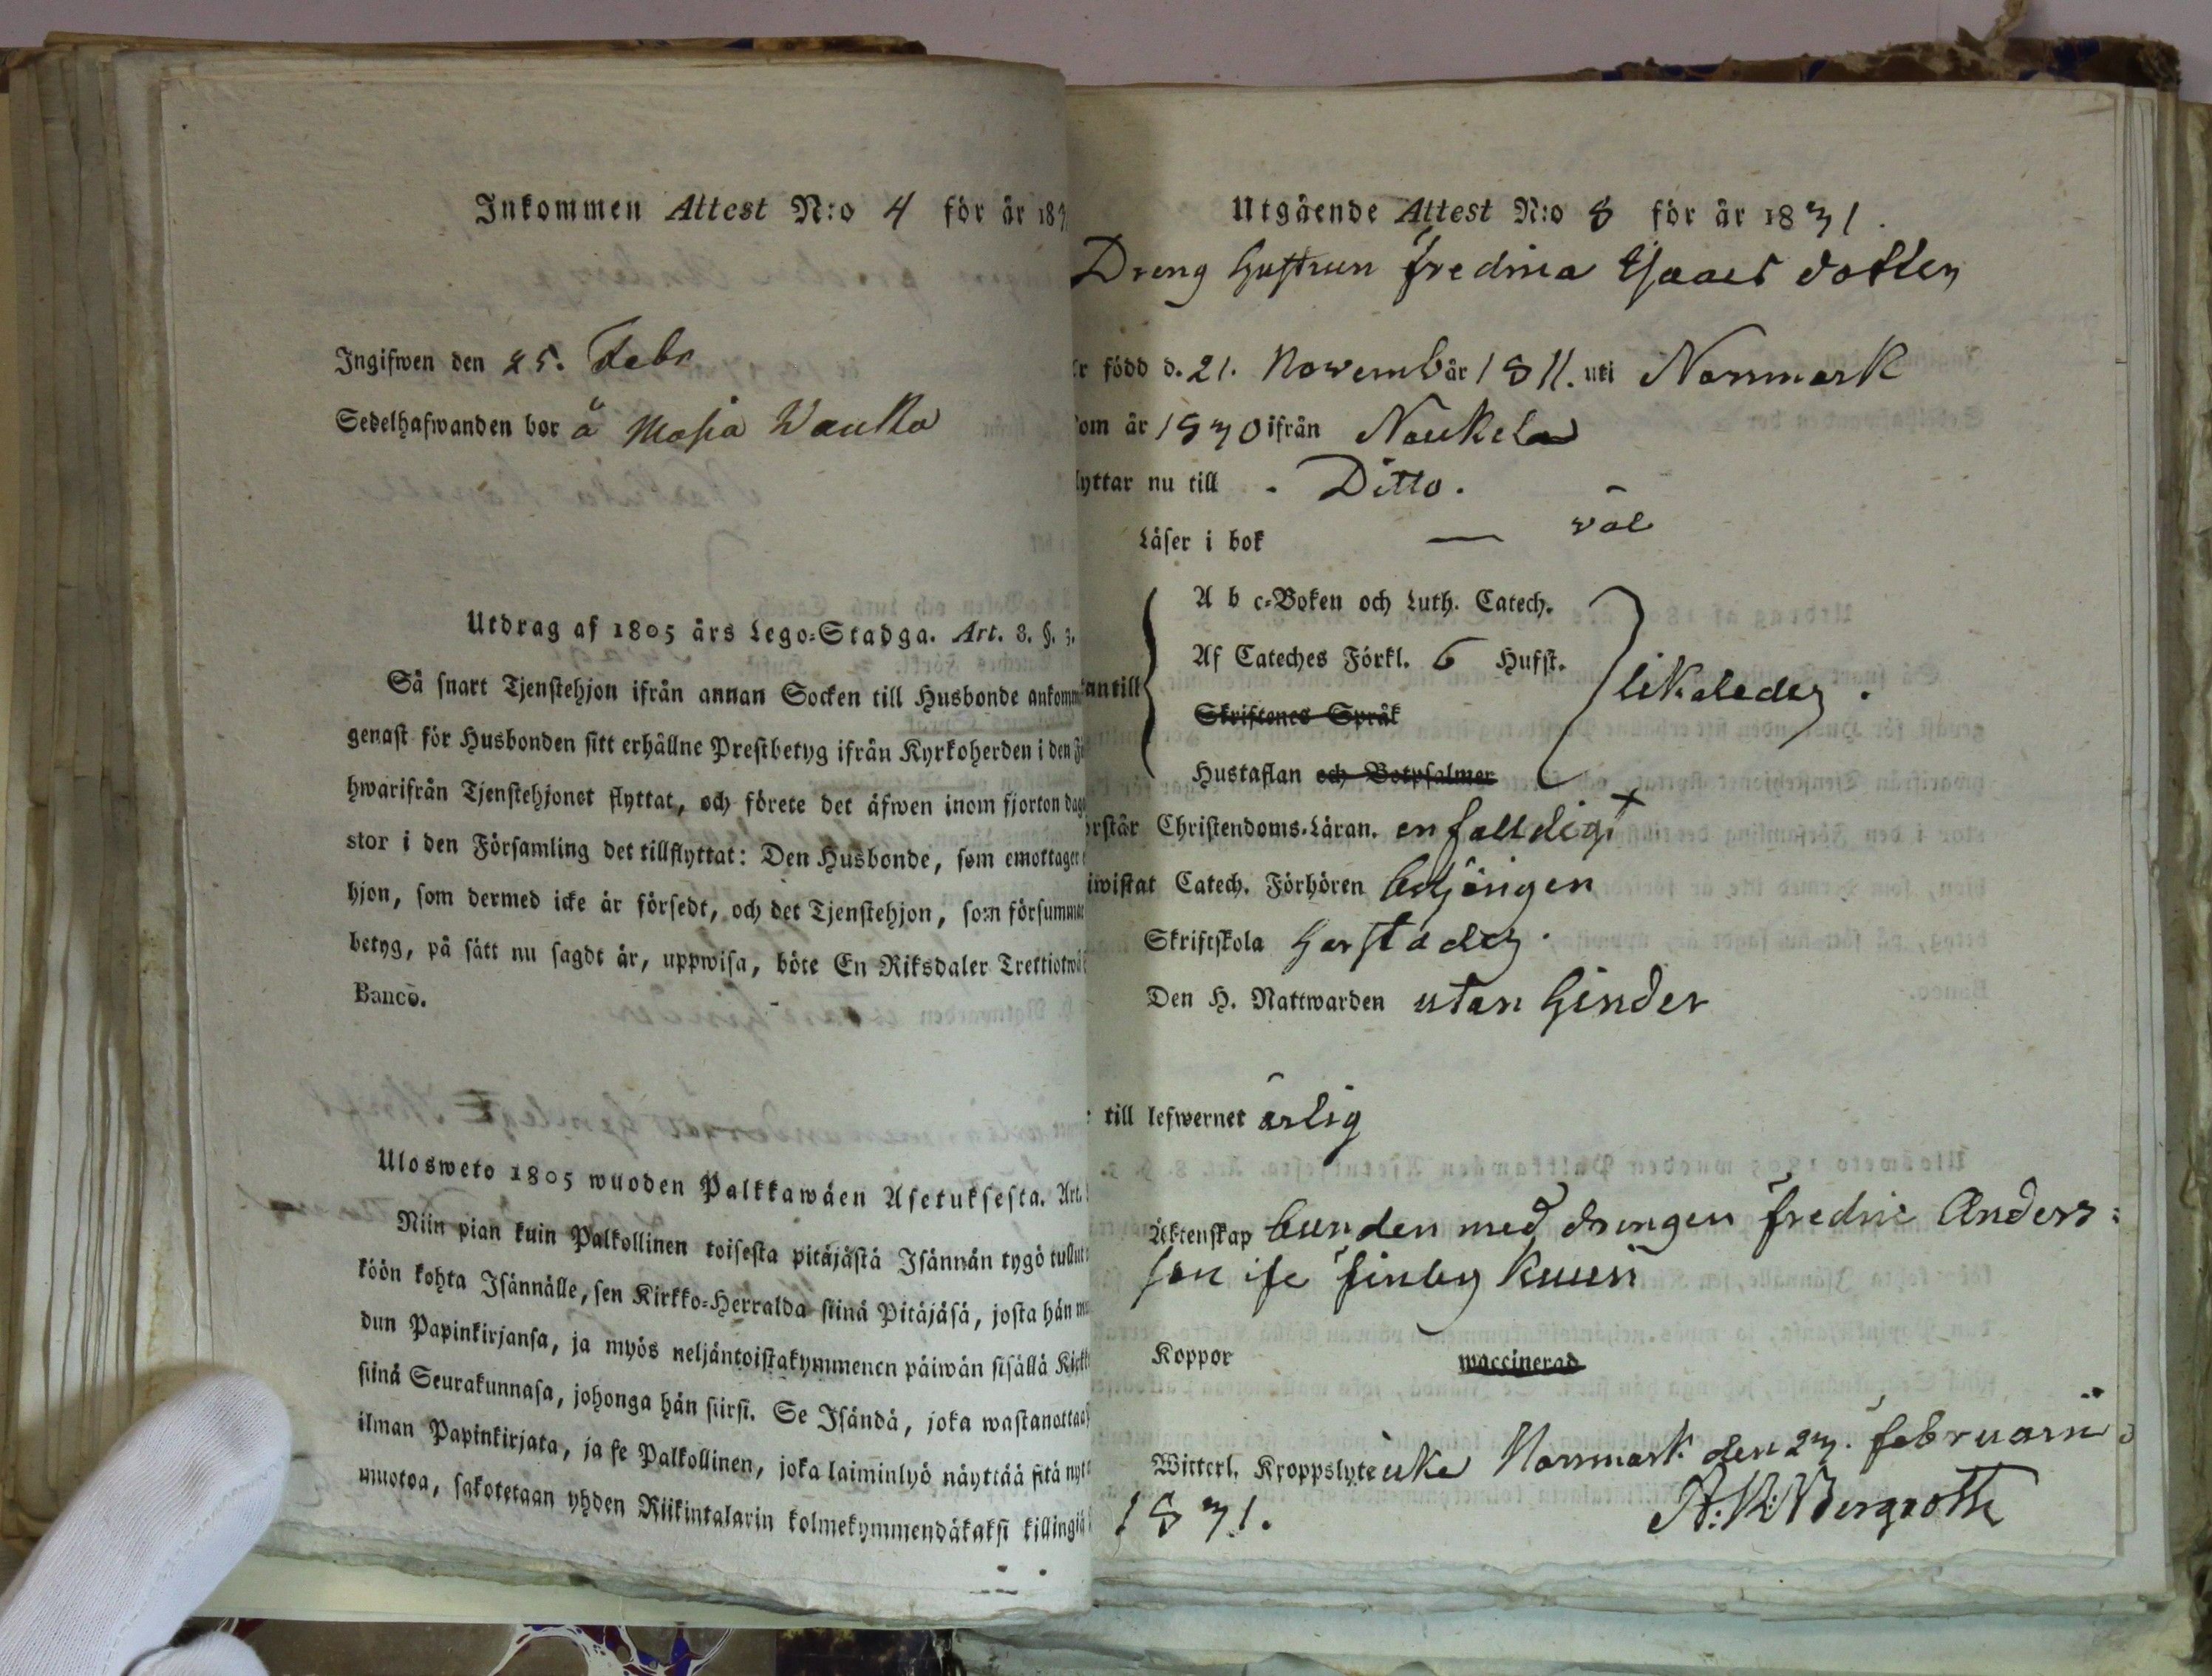 Inkommen Attest N:o 4 för år 183
Ingifwen den 25. Febr
Sedelhafwanden bor å Masia
Utdrag af 1805 års Lego-Stadga. Art. 8. §. 3.
Så snart Tjenstehjon ifrån annan Socken till Husbonde ankomm
genast för Husbonden sitt erhållne Prestbetyg ifrån Kyrkoherden i den
hwarifrån Tjenstehjonet flyttat, och förete det äfwen inom fjorton dag
stor i den Församling det tillflyttat: Den Husbonde, som emottager
hjon, som dermed icke är försedt, och det Tjenstehjon, som försumm
betyg, på sätt nu sagdt är, uppwisa, böte En Riksdaler Trettiotwå
Banco.
Ulosweto 1805 wuoden Palkkawäen Asetuksesta. Art.
Niin pian kuin Palkollinen toisesta pitäjästä Isännän tygö tullut
köön kohta Isännälle, sen Kirkko-Herralda siinä Pitäjäsä, josta hän mu
dun Papinkirjansa, ja myös neljäntoistakymmenen päiwän sisällä Kirk
siinä Seurakunnasa, johonga hän siirsi. Se Isändä, joka wastanottaa
ilman Papinkirjata, ja se Palkollinen, joka laiminlyö näyttää sitä nyt
muotoa, sakotetaan yhden Riikintalarin kolmekymmendäkaksi killingiä
Utgående Attest N:o 8 för år 1831.
Dreng Hustrun Fredrica Isaacs dotter
r född d. 21. Novemb är 1811. uti Norrmark
om är 1830 ifrån Naukela
lyttar nu till - Ditto.
Läser i bok — väl
A b c-Boken och Luth. Catech.
Af Cateches Förkl. 6 Hufst.
antill likaledes.
Skriftenes Språk
Hustaflan och Botpsalmer
rstår Christendoms-Läran. enfalldigt
iwistat Catech. Förhören behörigen
Skriftskola Harstädes.
Den H. Nattwarden utan hinder
till lefwernet ärlig
Äktenskap bunden med drengen Fredric Anders=
son ifr Finby
Koppor waccinerad
Witterl. Kroppslyte icke Norrmark den 23. Februarii
1831. A: W: Bergroth